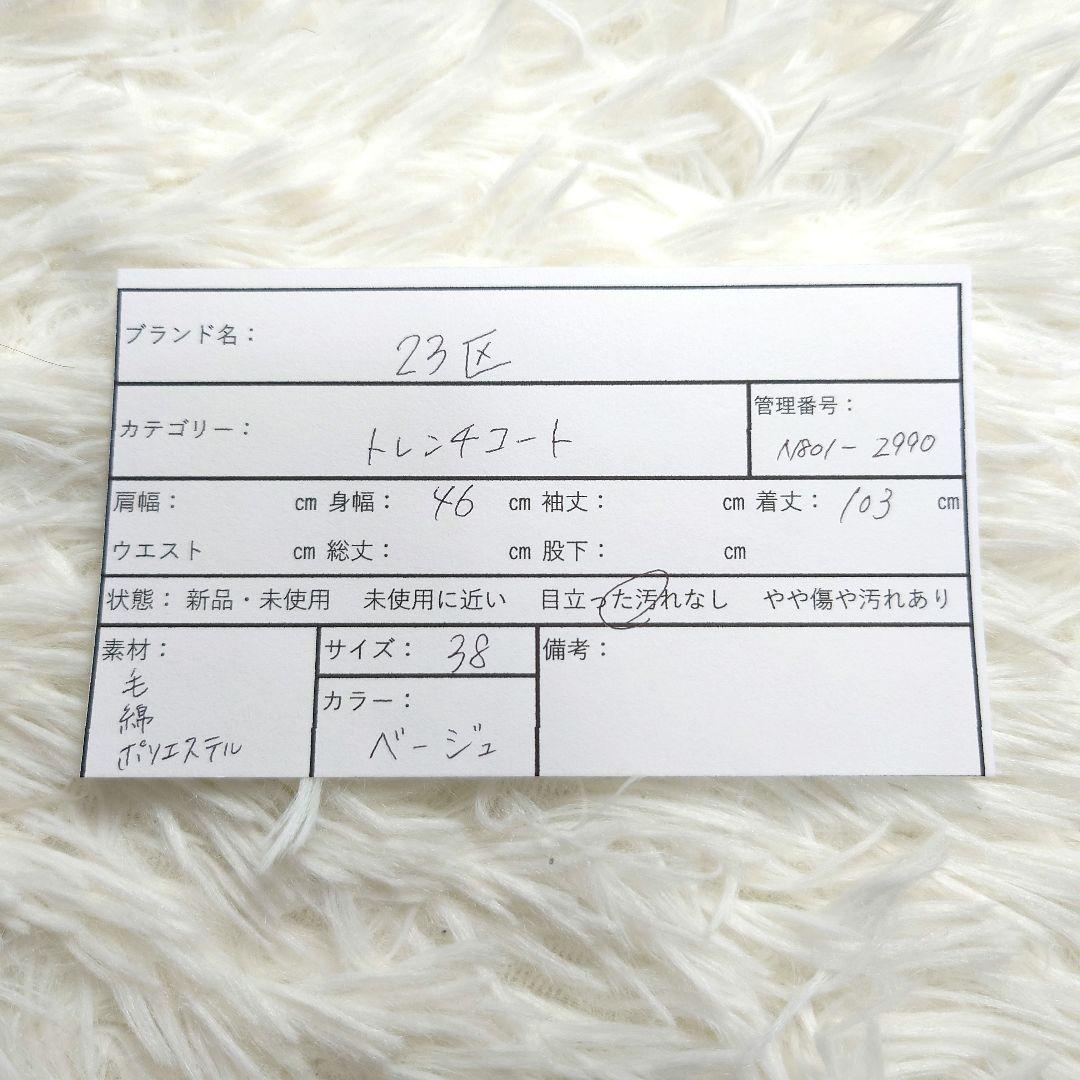 ブランド名： 23区
カテゴリー： トレンチコート
管理番号：
N801-2990
肩幅： cm 身幅： 46 cm 袖丈： cm 着丈： 103 cm
ウエスト cm 総丈： cm 股下： cm
状態： 新品・未使用 未使用に近い 目立った汚れなし やや傷や汚れあり
素材：
毛
綿
ポリエステル
サイズ： 38
カラー：
ベージュ
備考：